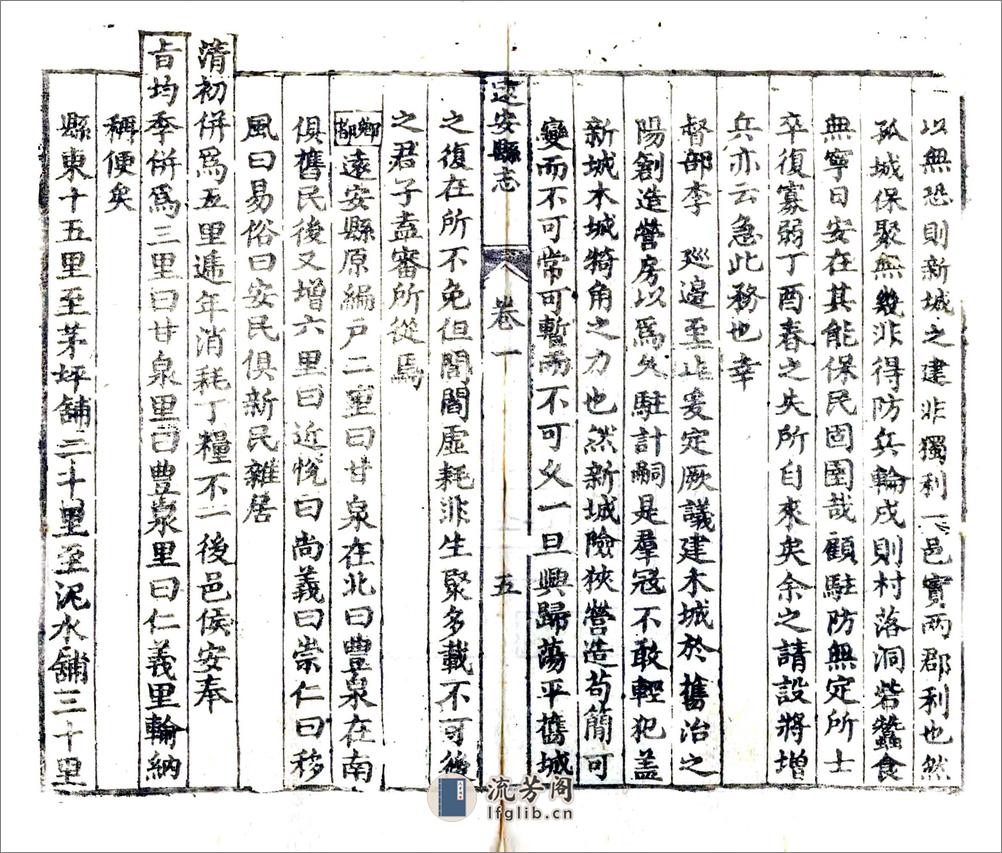 以無恐則新城之建非獨利一邑實兩郡利也然
孤城保聚無幾非得防兵輪戍則村落洞砦蠶食
無寧日安在其能保民固圉哉顧駐防無定所士
卒復寡弱丁酉春之失所自來矣余之請設將增
兵亦云急此務也幸
督部李 廵邉至止爰定厥議建木城於舊治之
陽創造營房以爲久駐計嗣是羣冦不敢輕犯盖
新城木城犄角之力也然新城險狹營造苟簡可
變而不可常可暫而不可久一旦興歸蕩平舊城
之復在所不免但閭閻虛耗非生聚多載不可後
之君子盍審所從焉
鄉都遠安縣原編戸二里曰甘泉在北曰豊泉在南
俱舊民後又增六里曰近悅曰尚義曰崇仁曰移
風曰易俗曰安民俱新民雜居
清初併爲五里遞年消耗丁糧不一後邑侯安奉
旨均季併爲三里曰甘泉里曰豊泉里曰仁義里輪納
稱便矣
縣東十五里至茅坪舖二十里至泥水舖三十里
遠安縣志
卷一
五
流芳阁
lfglib.cn